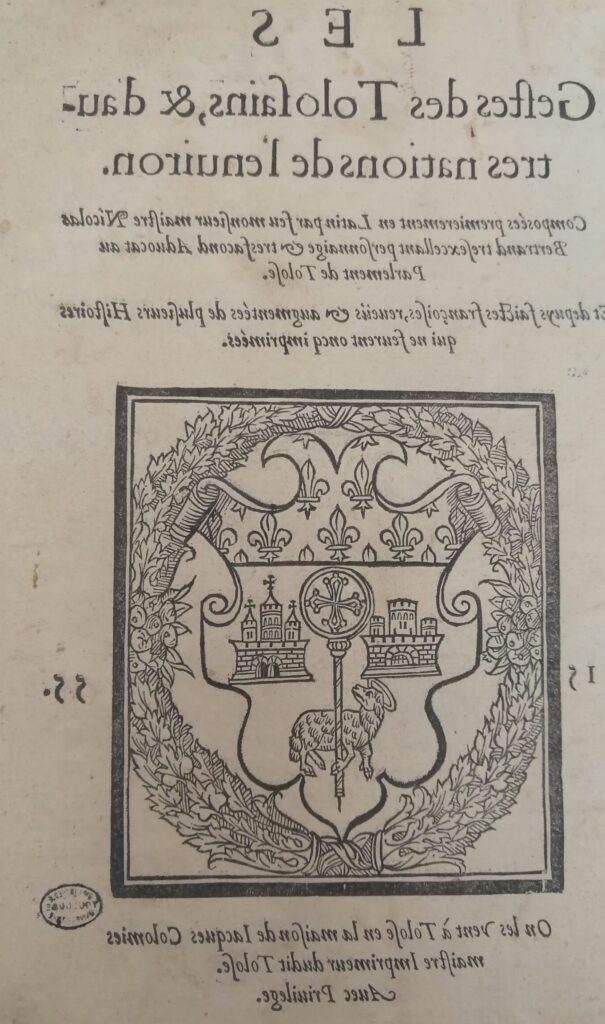 LES
Geſtes des Toloſains, & d'au-
tres nations de l'enuiron.
Compoſées premierement en Latin par feu monſieur maiſtre Nicolas
Bertrand treſexcellant perſonnaige & treſfacond Aduocat au
Parlement de Toloſe.
Et depuys faictes françoiſes, reueües & augmentées de pluſieurs Hiſtoires
qui ne feurent oncq imprimées.
15 55.
On les vent à Toloſe en la maiſon de Iacques Colomies
maiſtre Imprimeur dudit Toloſe.
Auec Priuilege.